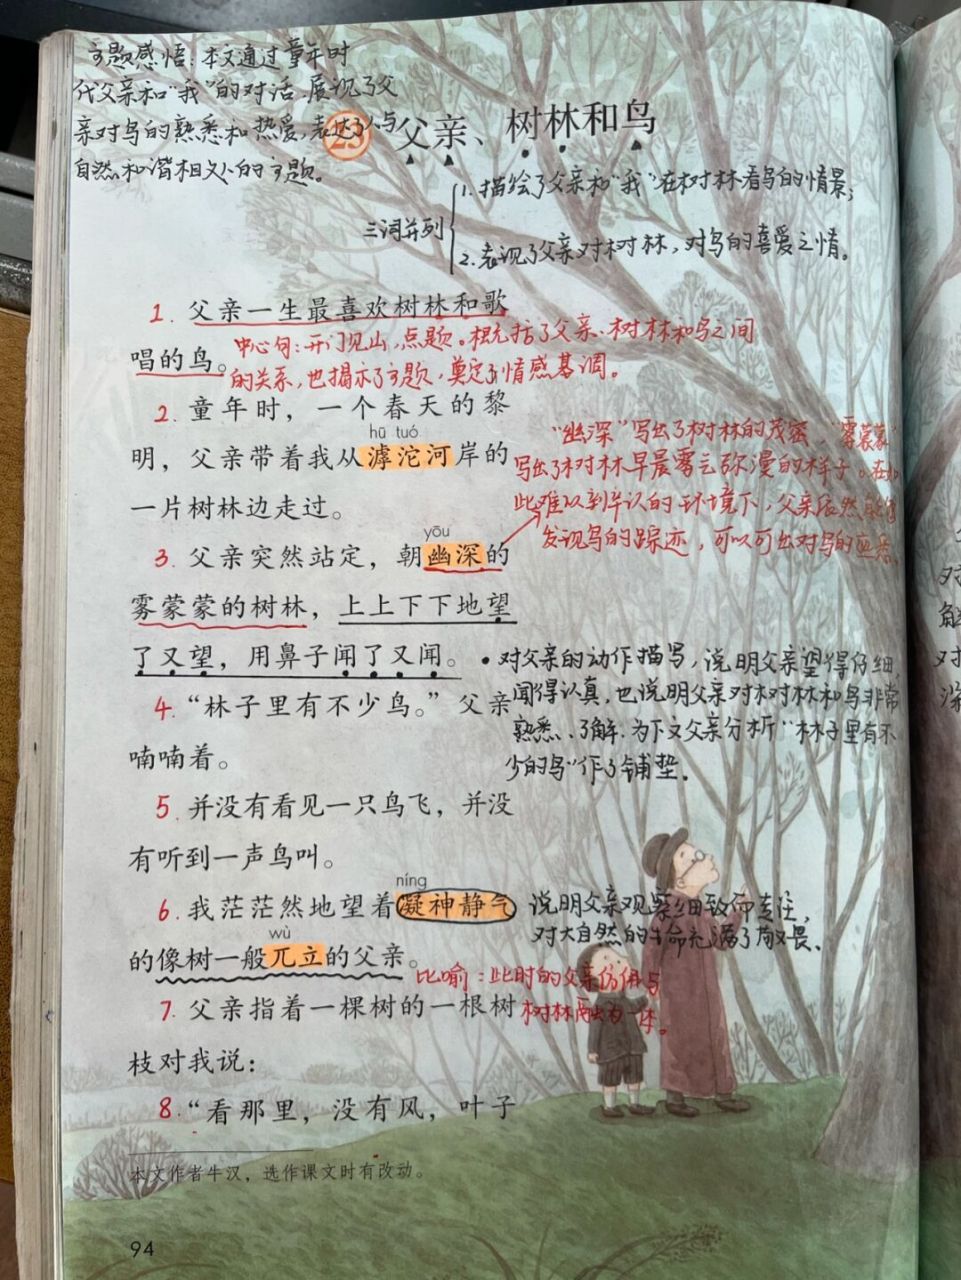 主题感悟：本文通过童年时
代父亲和“我”的对话，展现了父
亲对鸟的熟悉和热爱，表达了人与
自然和谐相处的主题。
23 父亲、树林和鸟
三词并列
1. 描绘了父亲和“我”在树林看鸟的情景；
2. 表现了父亲对树林，对鸟的喜爱之情。
1. 父亲一生最喜欢树林和歌
唱的鸟。
中心句：开门见山，点题。概括了父亲、树林和鸟之间
的关系，也揭示了主题，奠定了情感基调。
2. 童年时，一个春天的黎
hū tuó
明，父亲带着我从滹沱河岸的
一片树林边走过。
“幽深”写出了树林的茂密 “雾蒙蒙”
写出了树林早晨雾云弥漫的样子。在如
此难以到辨认的环境下，父亲依然
发现鸟的踪迹，可以可出对鸟的
yōu
3. 父亲突然站定，朝幽深的
雾蒙蒙的树林，上上下下地望
了又望，用鼻子闻了又闻。
·对父亲的动作描写，说明父亲望得仔细，
闻得认真，也说明父亲对树林和鸟非常
熟悉、了解，为下文父亲分析“林子里有不
少的鸟”作了铺垫。
4. “林子里有不少鸟。”父亲
喃喃着。
5. 并没有看见一只鸟飞，并没
有听到一声鸟叫。
níng
6. 我茫茫然地望着凝神静气
wù
的像树一般兀立的父亲。
说明父亲观察细致而专注，
对大自然的生命充满了敬畏、
比喻：此时的父亲仿佛与
树林融为一体。
7. 父亲指着一棵树的一根树
枝对我说：
8. “看那里，没有风，叶子
本文作者牛汉，选作课文时有改动。
94